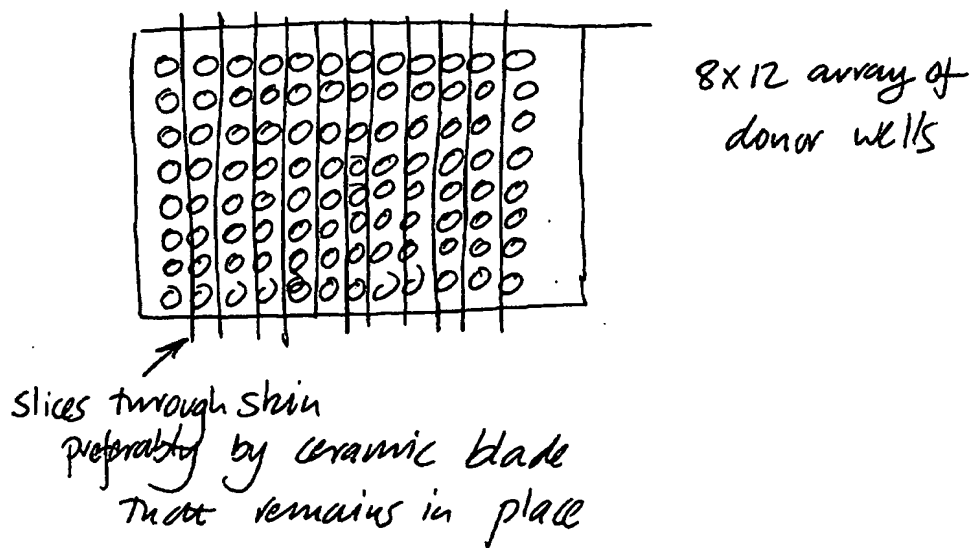 8x12 array of
donor wells
slices through skin
preferably by ceramic blade
that remains in place